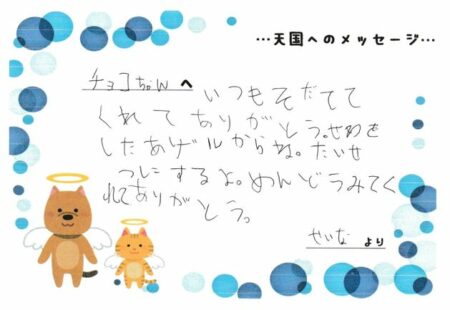 …天国へのメッセージ…
チョコちゃんへ
いつもそだてて
くれてありがとう。せわを
したあげルからね。たいせ
つにするよ。めんどうみてく
れてありがとう。
せいなより